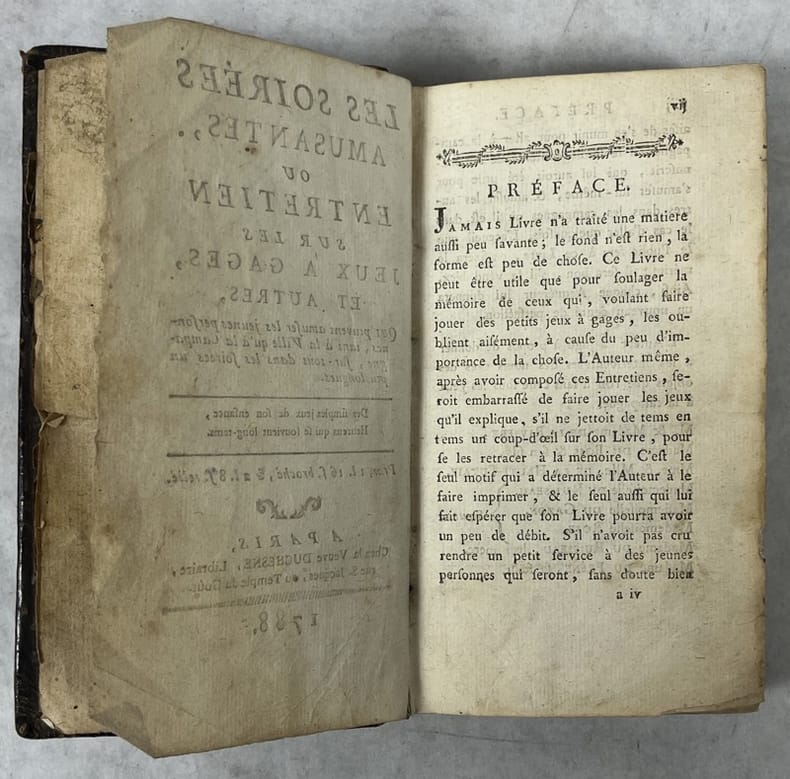 LES SOIRÉES
AMUSANTES,
OU
ENTRETIEN
SUR LES
JEUX À GAGES,
ET AUTRES,
Qui peuvent amuſer les jeunes perſon-
nes, tant à la Ville qu'à la Campa-
gne, ſur-tout dans les ſoirées un
peu longues.
Des ſimples jeux de ſon enfance,
Heureux qui ſe ſouvient long-tems.
Prix, 1 l. 16 ſ. broché, & 2 l. 8 ſ. relié.
A PARIS,
Chez la Veuve DUCHESNE, Libraire,
rue S. Jacques, au Temple du Goût.
1788.
vij
PRÉFACE.
JAMAIS Livre n'a traité une matiere
auſſi peu ſavante ; le fond n'eſt rien, la
forme eſt peu de choſe. Ce Livre ne
peut être utile que pour ſoulager la
mémoire de ceux qui, voulant faire
jouer des petits jeux à gages, les ou-
blient aiſément, à cauſe du peu d'im-
portance de la choſe. L'Auteur même,
après avoir compoſé ces Entretiens, ſe-
roit embarraſſé de faire jouer les jeux
qu'il explique, s'il ne jettoit de tems en
tems un coup-d'œil ſur ſon Livre, pour
ſe les retracer à la mémoire. C'eſt le
ſeul motif qui a déterminé l'Auteur à le
faire imprimer, & le ſeul auſſi qui lui
fait eſpérer que ſon Livre pourra avoir
un peu de débit. S'il n'avoit pas cru
rendre un petit ſervice à des jeunes
perſonnes qui ſeront, ſans doute bien
a iv